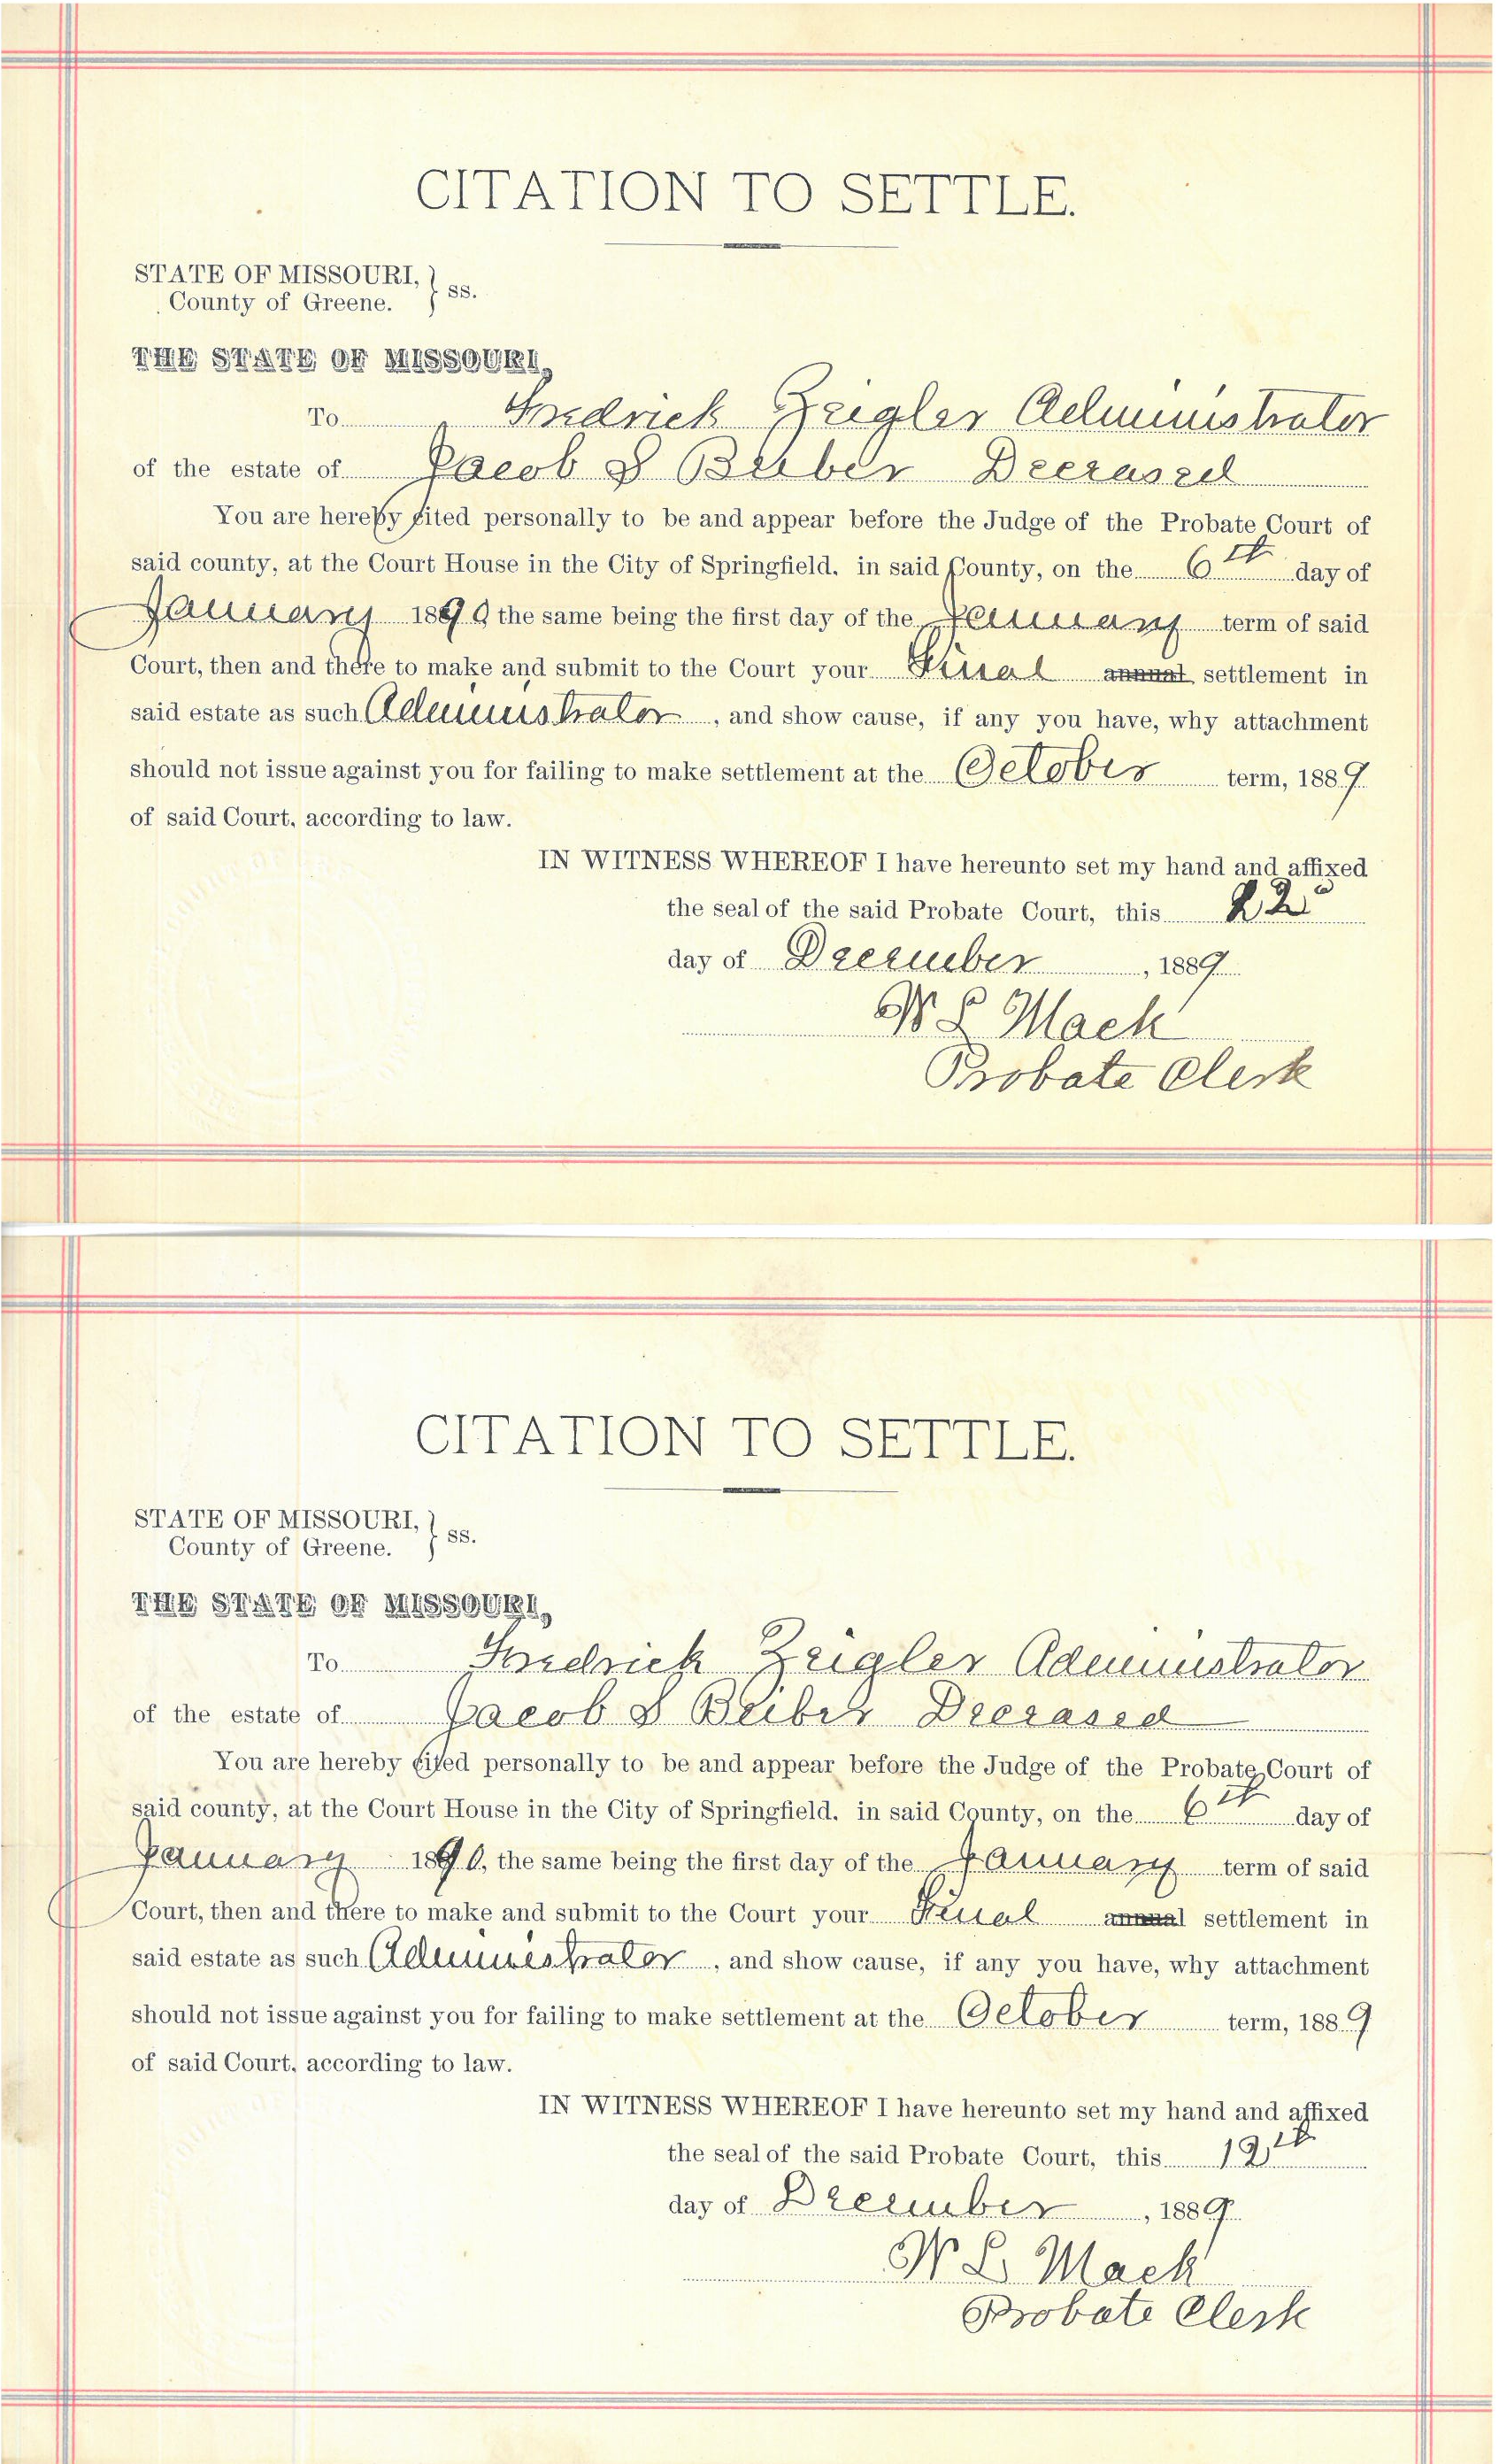 CITATION TO SETTLE.
STATE OF MISSOURI, } ss.
County of Greene.
THE STATE OF MISSOURI,
To Fredrick Zeigler Administrator
of the estate of Jacob S Beiber Deceased
You are hereby cited personally to be and appear before the Judge of the Probate Court of
said county, at the Court House in the City of Springfield, in said County, on the 6th day of
January 1890 the same being the first day of the January term of said
Court, then and there to make and submit to the Court your Final annual settlement in
said estate as such Administrator, and show cause, if any you have, why attachment
should not issue against you for failing to make settlement at the October term, 1889.
of said Court, according to law.
IN WITNESS WHEREOF I have hereunto set my hand and affixed
the seal of the said Probate Court, this 22
day of December, 1889
W L Mack
Probate Clerk
CITATION TO SETTLE.
STATE OF MISSOURI, } ss.
County of Greene.
THE STATE OF MISSOURI,
To Fredrick Zeigler Administrator
of the estate of Jacob S Beiber Deceased
You are hereby cited personally to be and appear before the Judge of the Probate Court of
said county, at the Court House in the City of Springfield, in said County, on the 6th day of
January 1890, the same being the first day of the January term of said
Court, then and there to make and submit to the Court your Final annual settlement in
said estate as such Administrator, and show cause, if any you have, why attachment
should not issue against you for failing to make settlement at the October term, 1889
of said Court, according to law.
IN WITNESS WHEREOF I have hereunto set my hand and affixed
the seal of the said Probate Court, this 19th
day of December, 1889
W L Mack
Probate Clerk